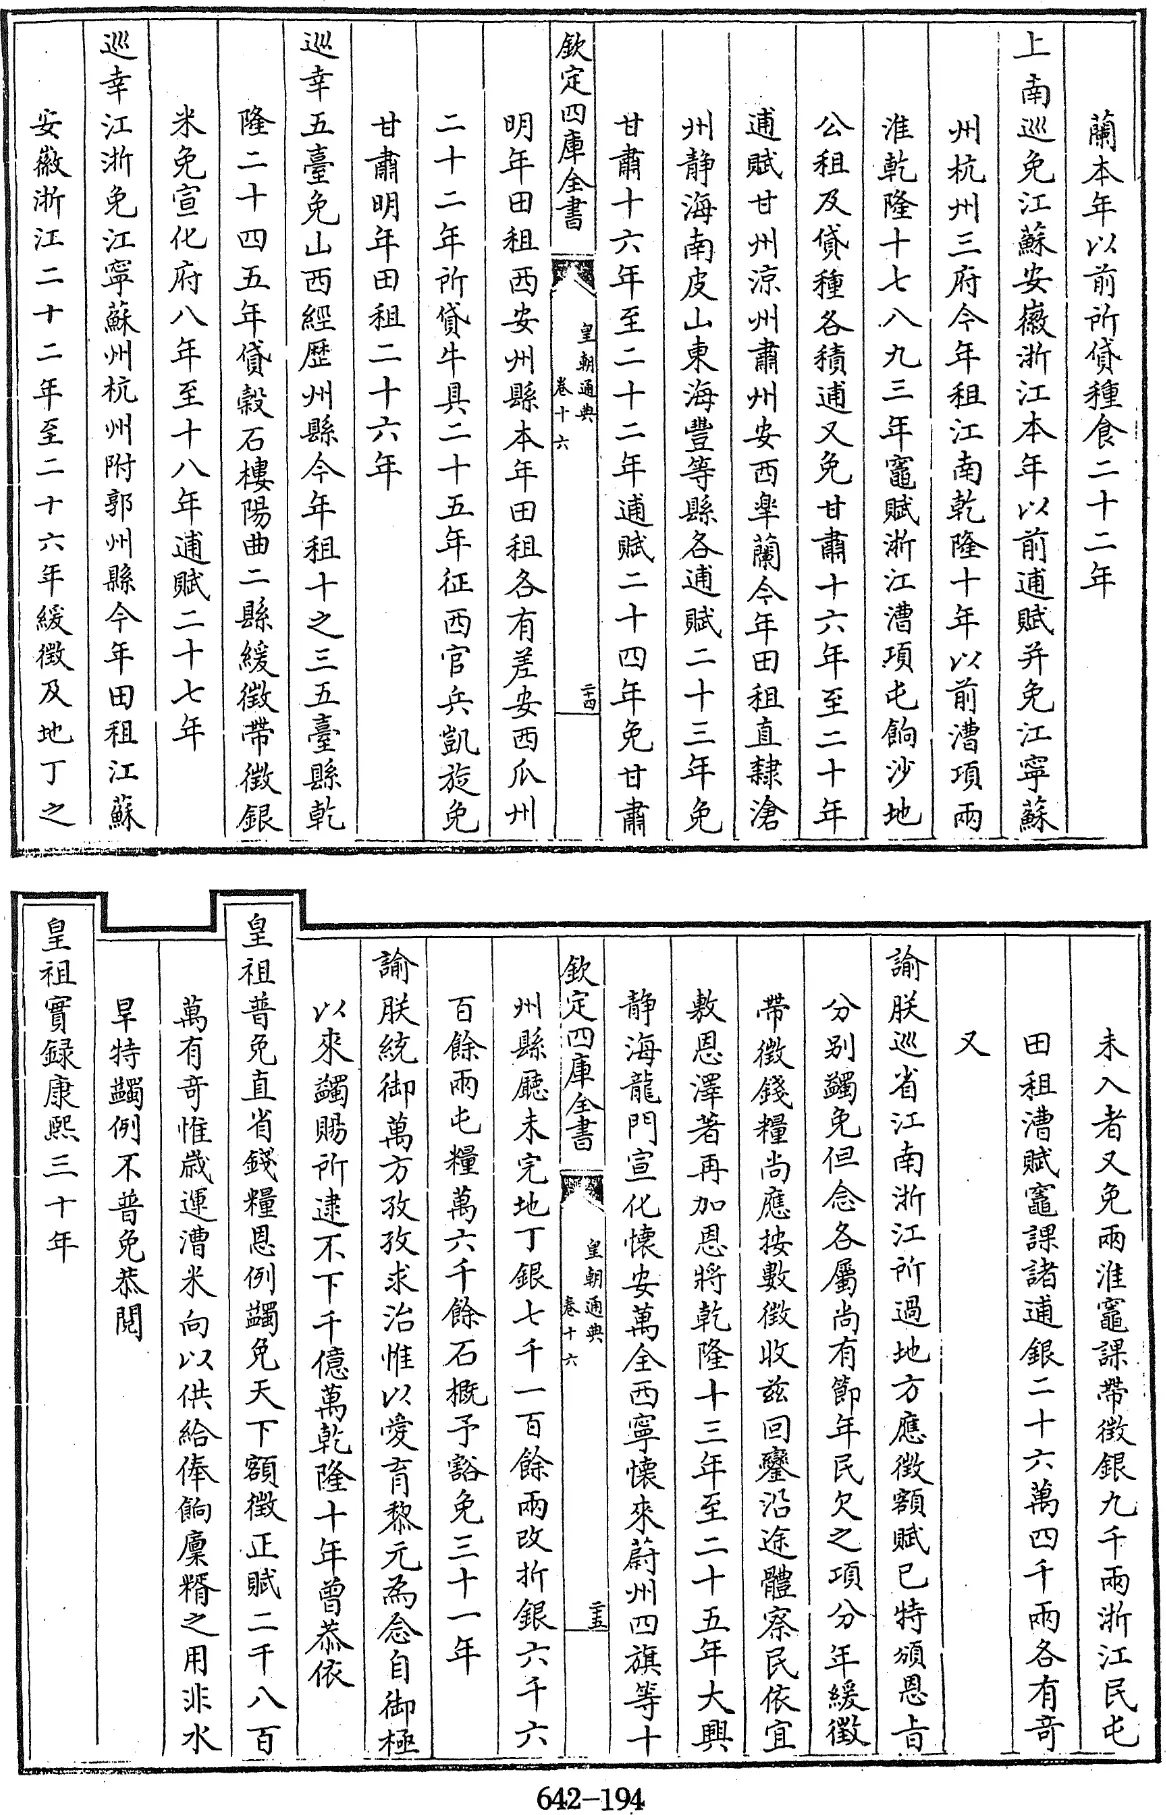 蘭本年以前所貸種食二十二年
上南巡免江蘇安徽浙江本年以前逋賦并免江寧蘇
州杭州三府今年租江南乾隆十年以前漕項兩
淮乾隆十七八九三年竈賦浙江漕項屯餉沙地
公租及貸種各積逋又免甘肅十六年至二十年
逋賦甘州涼州肅州安西臯蘭今年田租直隸滄
州靜海南皮山東海豐等縣各逋賦二十三年免
甘肅十六年至二十二年逋賦二十四年免甘肅
欽定四庫全書
皇朝通典
卷十六
二十四
明年田租西安州縣本年田租各有差安西瓜州
二十二年所貸牛具二十五年征西官兵凱旋免
甘肅明年田租二十六年
巡幸五臺免山西經歷州縣今年租十之三五臺縣乾
隆二十四五年貸穀石樓陽曲二縣緩徵帶徵銀
米免宣化府八年至十八年逋賦二十七年
巡幸江浙免江寧蘇州杭州附郭州縣今年田租江蘇
安徽浙江二十二年至二十六年緩徵及地丁之
未入者又免兩淮竈課帶徵銀九千兩浙江民屯
田租漕賦竈課諸逋銀二十六萬四千兩各有奇
又
諭朕巡省江南浙江所過地方應徵額賦已特頒恩旨
分别蠲免但念各屬尚有節年民欠之項分年緩徵
帶徵錢糧尚應按數徵收兹回鑾沿途體察民依宜
敷恩澤著再加恩將乾隆十三年至二十五年大興
靜海龍門宣化懷安萬全西寧懷來蔚州四旗等十
欽定四庫全書
皇朝通典
卷十六
二十五
州縣廳未完地丁銀七千一百餘兩改折銀六千六
百餘兩屯糧萬六千餘石概予豁免三十一年
諭朕統御萬方孜孜求治惟以愛育黎元為念自御極
以來蠲賜所逮不下千億萬乾隆十年曾恭依
皇祖普免直省錢糧恩例蠲免天下額徵正賦二千八百
萬有奇惟歲運漕米向以供給俸餉廩糈之用非水
旱特蠲例不普免恭閱
皇祖實録康熙三十年
642-194